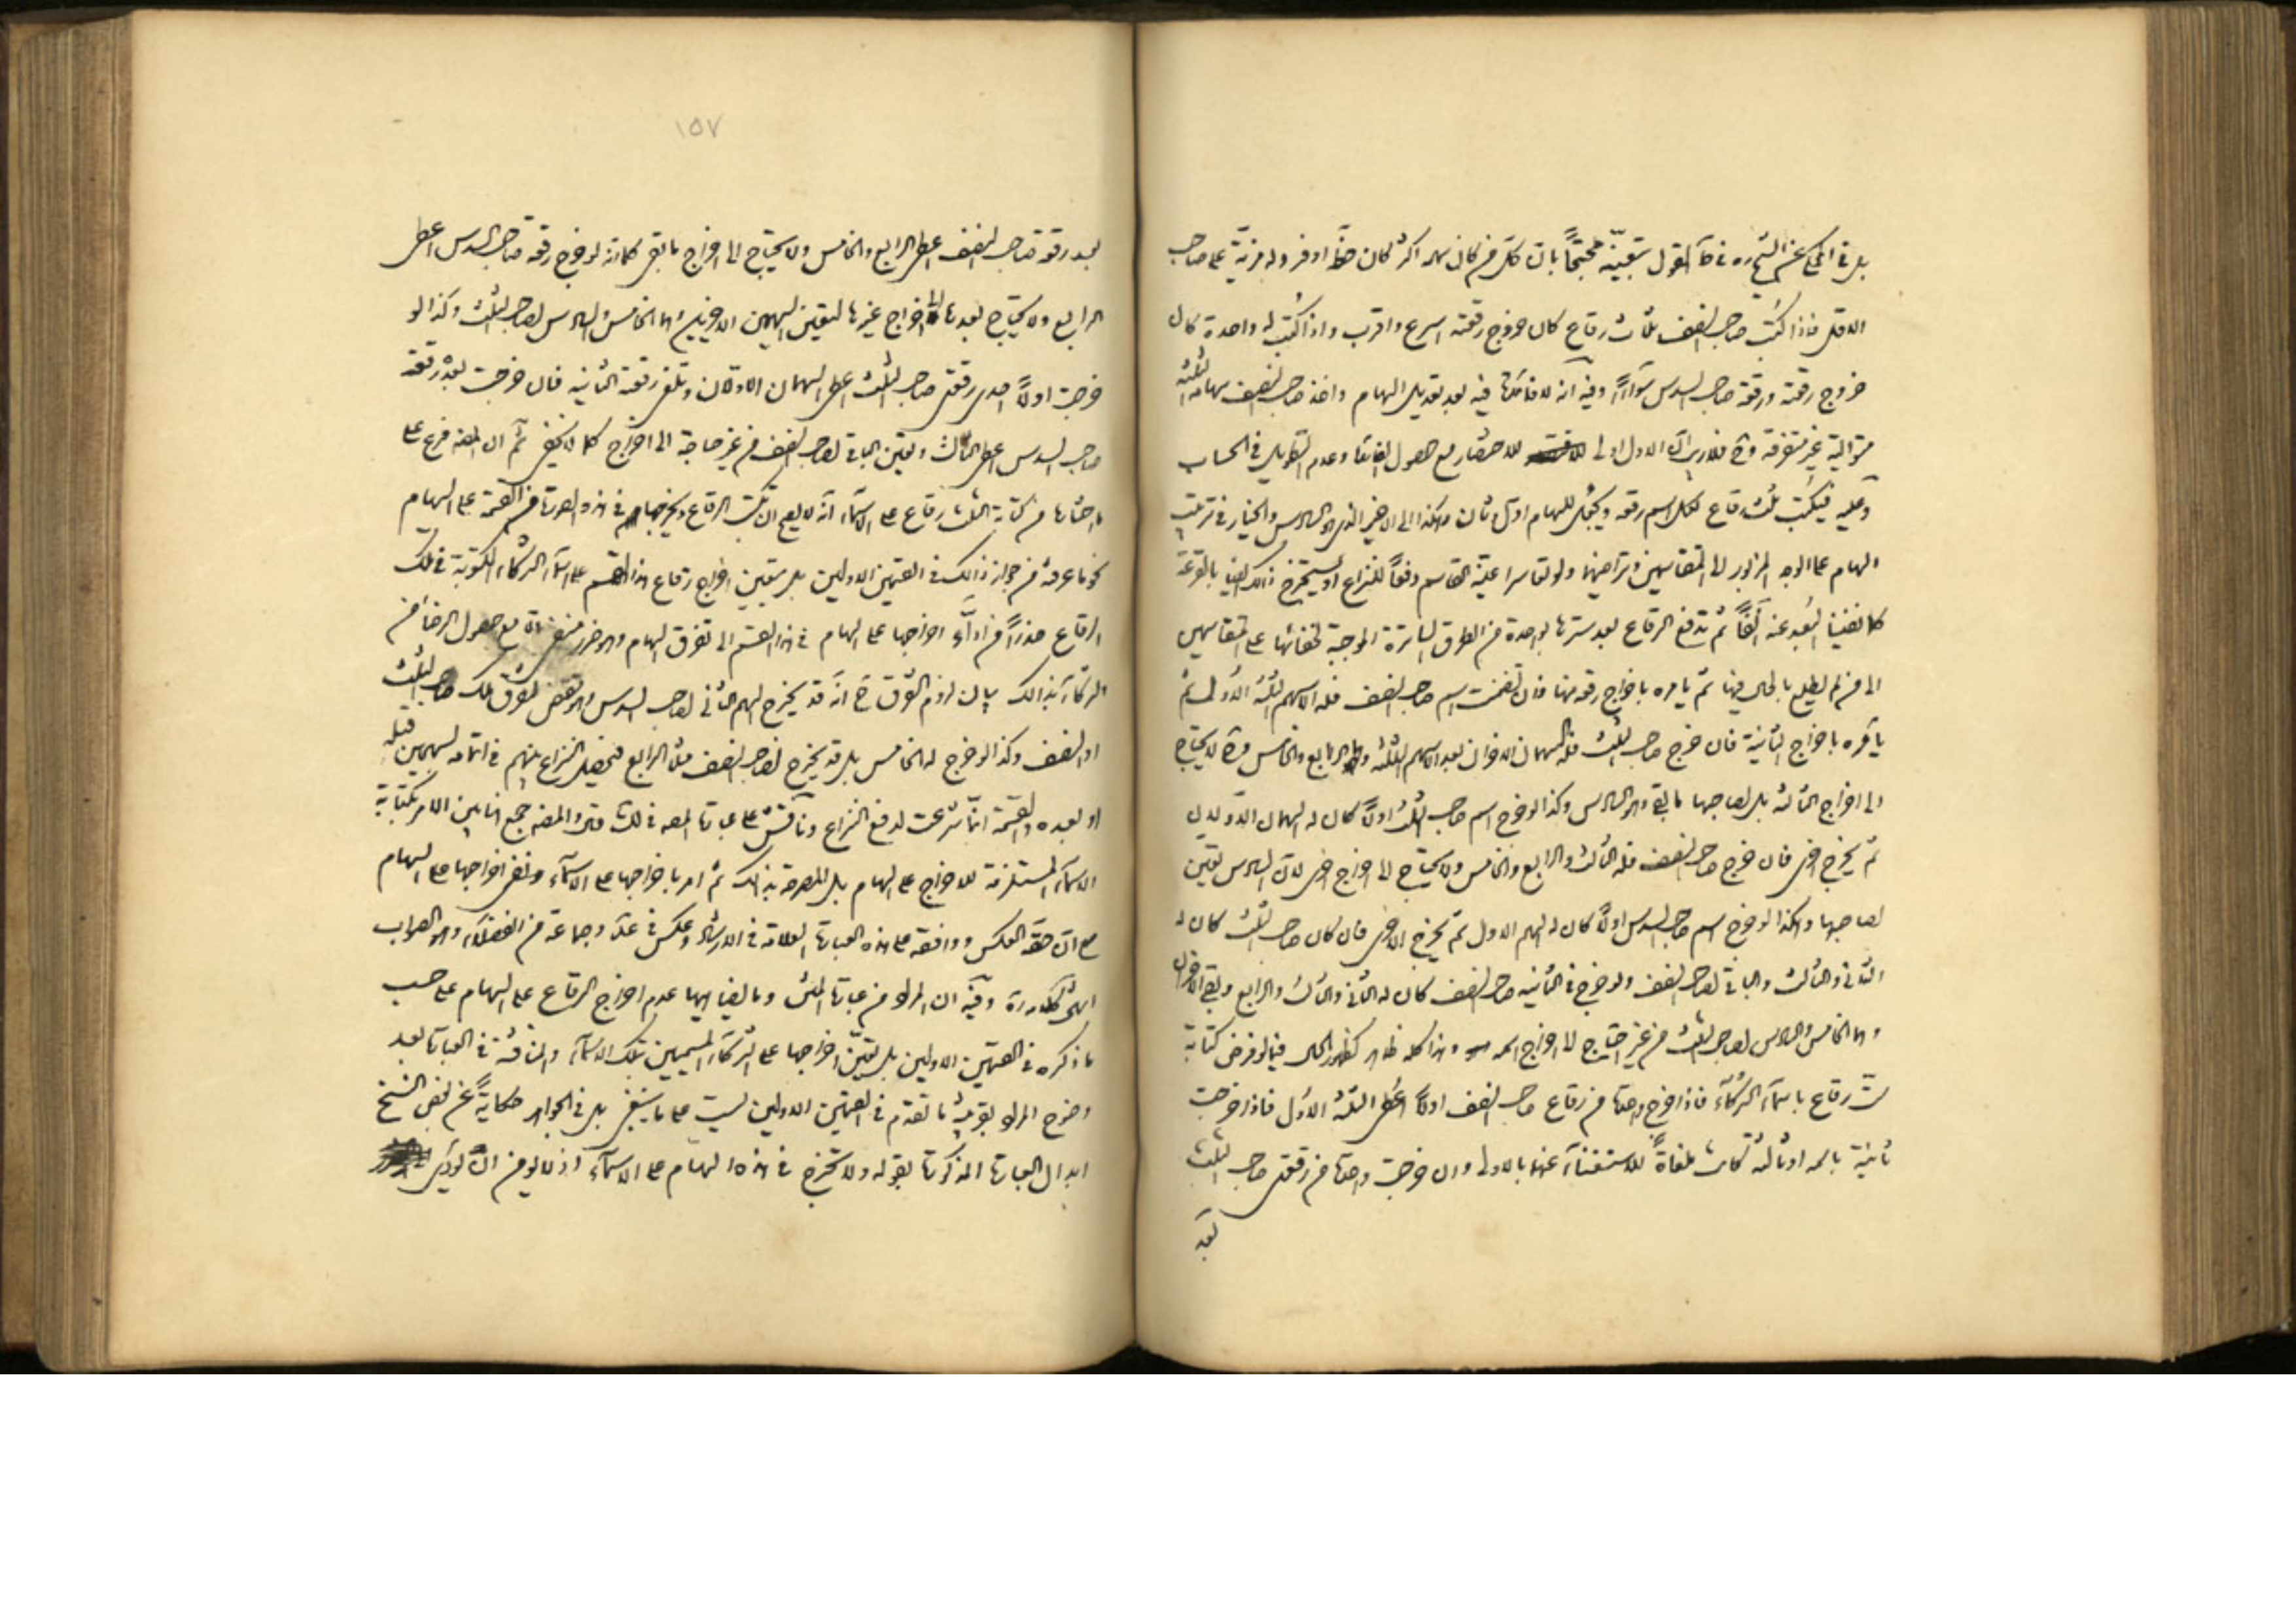 بل في المحكي عن الشيخ ره في كا القول بتعينه محتجاً بان كل من كان سهمه اكثر كان حظه اوفر وله مزية على صاحب
الاقل فاذا كتب لصاحب النصف ثلاث رقاع كان خروج رقعته اسرع واقرب واذا كتب له واحدة كان
خروج رقعته ورقعة صاحب السدس سوآءً وفيه انه لا فائدة فيه بعد تعديل السهام واخذ صاحب النصف سهامه الثلثة
متوالية غير متفرقة وح فلا ريب ان الاول اولى للاختصار مع حصول الغرض وعدم التطويل في الحساب
وعليه فيكتب ثلث رقاع لكل اسم رقعة ويجعل للسهام اول وثان وهكذا الى الاخير الذي هو السادس والخيار في ترتيب
السهام على الوجه المزبور الى المتقاسمين وتراضيهما ولو تعاسرا عينه القاسم دفعاً للنزاع او يستخرج ذلك ايضا بالقرعة
كما نفينا البعد عنه آنفاً ثم تدفع الرقاع بعد سترها بواحدة من الطرق الساترة الموجبة لخفائها على المتقاسمين
الى من لم يطلع بالحال فيها ثم يامره باخراج رقعة منها فان تضمنت اسم صاحب النصف فله الاسهم الثلثة الاولى ثم
يامره باخراج الثانية فان خرج صاحب الثلث فله السهمان الاخران بعد الاسهم الثلثة وهما الرابع والخامس وح لا يحتاج
الى اخراج الثالثة بل لصاحبها ما بقي وهو السادس وكذا لو خرج اسم صاحب الثلث اولاً كان له السهمان الاولان
ثم يخرج اخرى فان خرج صاحب النصف فله الثالث والرابع والخامس ولا يحتاج الى اخراج اخرى لان السادس تعين
لصاحبها وهكذا لو خرج اسم صاحب السدس اولاً كان له السهم الاول ثم يخرج الاخرى فان كان صاحب الثلث كان له
الثاني والثالث والباقي لصاحب النصف ولو خرج في الثانية صاحب النصف كان له الثاني والثالث والرابع وبقي الاخران
وهما الخامس والسادس لصاحب الثلث من غير احتياج الى اخراج اسمه وهذا كله ظاهر كظهور الحال فيما لو فرض كتابة
ست رقاع باسمآء الشركآء فاذا خرج واحدة من رقاع صاحب النصف اولاً اعطى الثلثة الاول فاذا خرجت
ثانية باسمه او ثالثة كانت ملغاةً للاستغنآء عنها بالاولى وان خرجت واحدة من رقعتي صاحب الثلث
بعد
١٥٧
بعد رقعة صاحب النصف اعطى الرابع والخامس ولا يحتاج الى اخراج ما بقي كما انه لو خرج رقعة صاحب السدس اعطى
الرابع ولا يحتاج بعدها الى اخراج غيرها لتعين السهمين الاخيرين وهما الخامس والسادس لصاحب الثلث وكذا لو
خرجت اولاً احدى رقعتي صاحب الثلث اعطى السهمان الاولان وتلغى رقعته الثانية فان خرجت بعده رقعة
صاحب السدس اعطى الثالث وتعين الباقي لصاحب النصف من غير حاجة الى اخراج كما لا يخفى ثم ان المصنف فرع على
ما اختاره من كتابة الثلث رقاع على الاسمآء انه لا يصح ان تكتب الرقاع ويخرجها في هذه الصورة من القسمة على السهام
نحو ما عرفته من جواز ذلك في القسمتين الاوليين بل يتعين اخراج رقاع هذا القسم على اسمآء الشركآء المكتوبة في تلك
الرقاع حذراً من ادآء اخراجها على السهام في هذا القسم الى تفرق السهام وهو ضرر منفي الا مع حصول الرضا من
الشركآء بذلك بيان لزوم التفرق ح انه قد يخرج السهم الثاني لصاحب السدس وهو يقتضي تفرق ملك صاحب الثلث
او النصف وكذا لو خرج له الخامس بل قد يخرج لصاحب النصف مثلاً الرابع فيحصل النزاع بينهم في اتمامه السهمين قبله
او بعده والقسمة انما شرعت لدفع النزاع وناقش على عبارة المصنف في لك ففي المصنف جمع هنا بين الامر بكتابة
الاسمآء المستلزمة للاخراج على السهام بل المصرحة بذلك ثم امر باخراجها على الاسمآء ونفى اخراجها على السهام
مع ان حقه العكس ووافقه على هذه العبارة العلامة في الارشاد وعكس في عد وجماعة من الفضلآء وهو الصواب
انتهى كلامه ره وفيه ان المراد من عبارة المتن وما يضاهيها عدم اخراج الرقاع على السهام على حسب
ما ذكره في القسمتين الاوليين بل يتعين اخراجها على الشركآء المسمين بتلك الاسمآء والمناقشة في العبارة بعد
وضوح المراد بقرينة ما تقدم في القسمتين الاوليين ليست على ما ينبغي بل في الجواهر حكايةً عن بعض النسخ
ابدال العبارة المذكورة بقوله ولا تخرج في هذه السهام على الاسمآء اذ لا يؤمن ان يؤدي